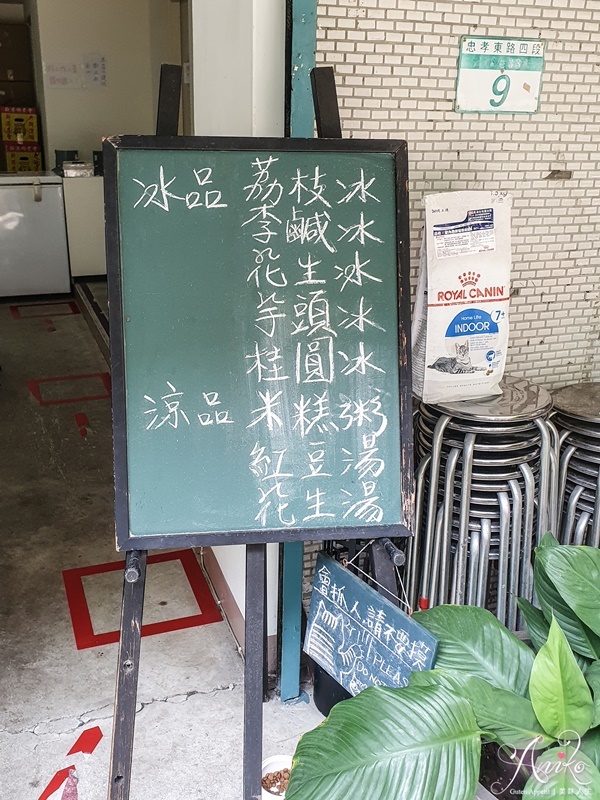 冰品
荔枝冰
李鹹冰
花生冰
芋頭冰
桂圓冰
涼品
米糕粥
紅豆湯
花生湯
忠孝東路四段
9
ROYAL CANIN
Home Life
INDOOR
7+
會抓人請不要摸
PLEAS
DONO
Aniko